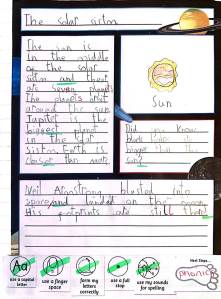 The solar sistm
The sun is
in the middle
of the solar
sistm and there
are seven planets
The planets orbit
around the sun
Jupiter is the
biggest planet
in the solar
sistm Earth is
closer than
Sun
Did you know
is
bigger than the
sun?
Neil Armstrong blasted into
space and landed on the moon
His footprints are still there
Next Steps...
use a capital letter
use a finger space
form my letters correctly
use a full stop
use my sounds for spelling
phonics